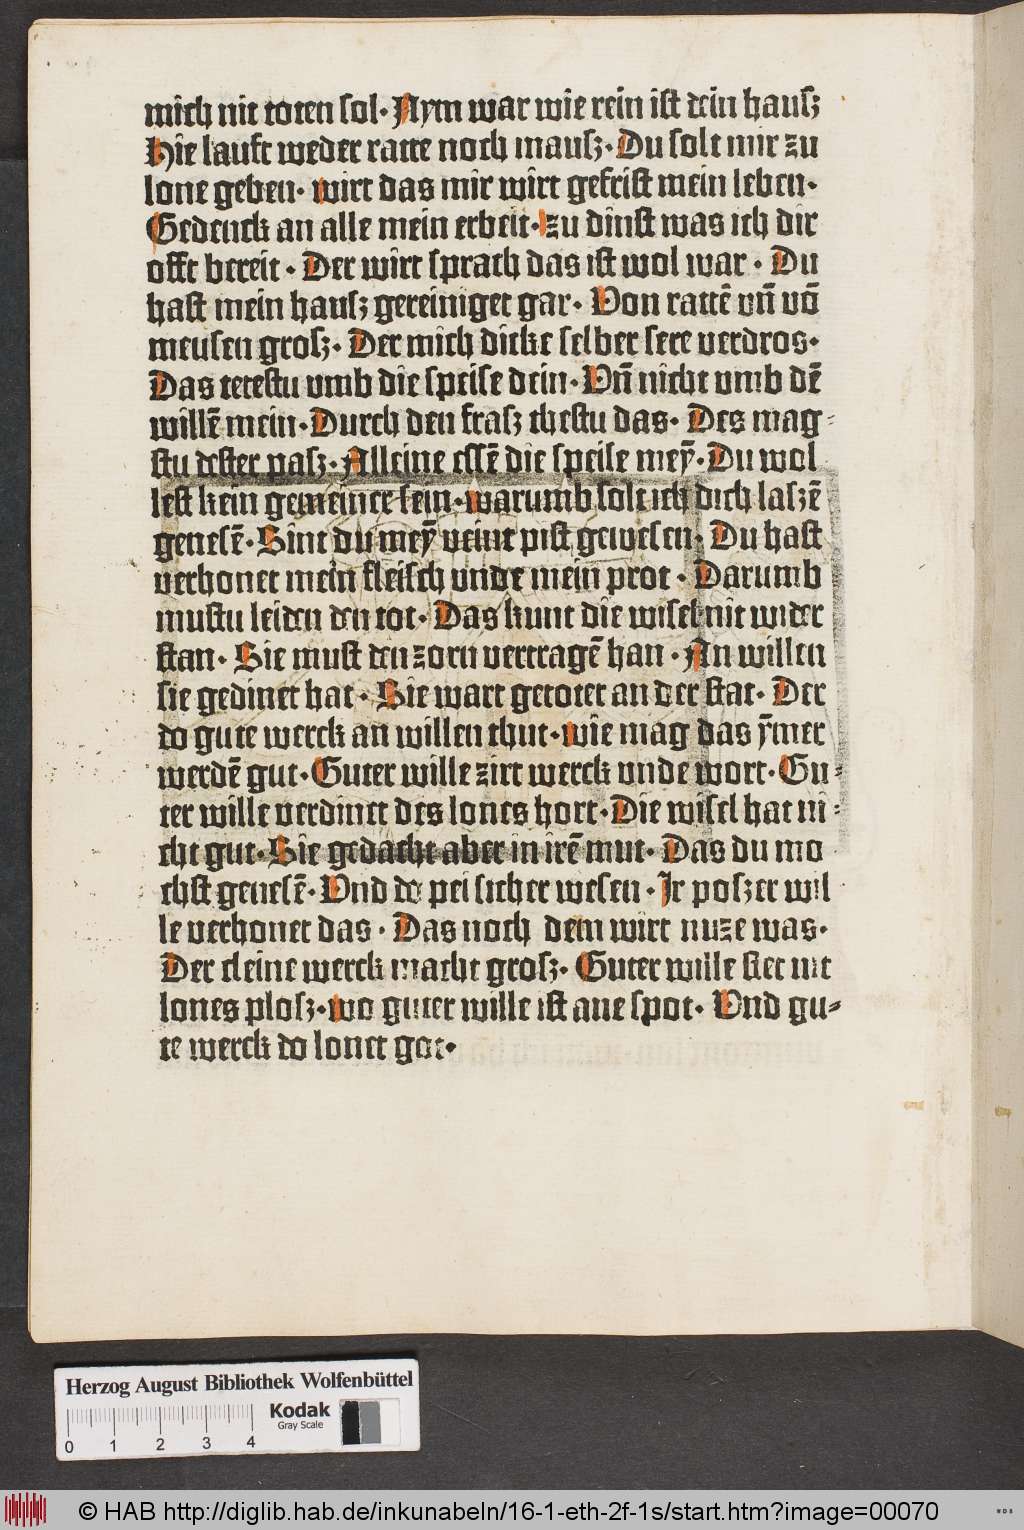 mich nit toten sol· Nym war wie rein ist dein hausz
Hie lauft weder ratte noch mausz· Du solt mir zu
lone geben· wirt das mir wirt gefrist mein leben·
Gedenck an alle mein erbeit· zu dinst was ich dir
offt bereit · Der wirt sprach das ist wol war · Du
hast mein hausz gereiniget gar· Von rattē vn̄ vō
meusen grosz· Der mich dicke selber sere verdros·
Das tetestu vmb die speise dein· Vn̄ nicht vmb dē
willē mein· Durch den frasz thestu das· Des mag-
stu dester pasz· Alleine essē die speise meȳ· Du wol
lest kein gemeiner sein· warumb solt ich dich laszē
genesē· Sint du meȳ veint pist gewesen· Du hast
verhonet mein fleisch vnde mein prot · Darumb
mustu leiden den tot· Das kunt die wisel nit wider
stan· Sie must den zorn vertragē han · An willen
sie gedinet hat · Sie wart getotet an der stat· Der
do gute werck an willen thut· wie mag das ȳmer
werdē gut· Guter wille zirt werck vnde wort· Gu-
ter wille verdinet des lones hort· Die wisel hat ni-
cht gut· Sie gedacht aber in irē mut· Das du mo
chst genesē· Vnd do pei sicher wesen · Ir poszer wil
le verhonet das · Das noch dem wirt nuze was·
Der cleine werck macht grosz· Guter wille stet nit
lones plosz· wo guter wille ist ane spot· Vnd gu-
te werck do lonet got·
Herzog August Bibliothek Wolfenbüttel
Kodak
Gray Scale
0 1 2 3 4
© HAB http://diglib.hab.de/inkunabeln/16-1-eth-2f-1s/start.htm?image=00070